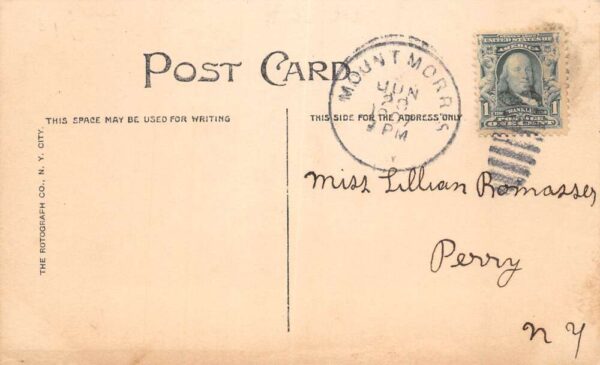 POST CARD
THIS SPACE MAY BE USED FOR WRITING
THIS SIDE FOR THE ADDRESS ONLY
THE ROTOGRAPH CO., N. Y. CITY.
MOUNT MORRIS
JUN
PM
UNITED STATES OF
AMERICA
1 1
FRANKLIN
POSTAGE
ONE CENT
Miss Lillian Romasser
Perry
N Y